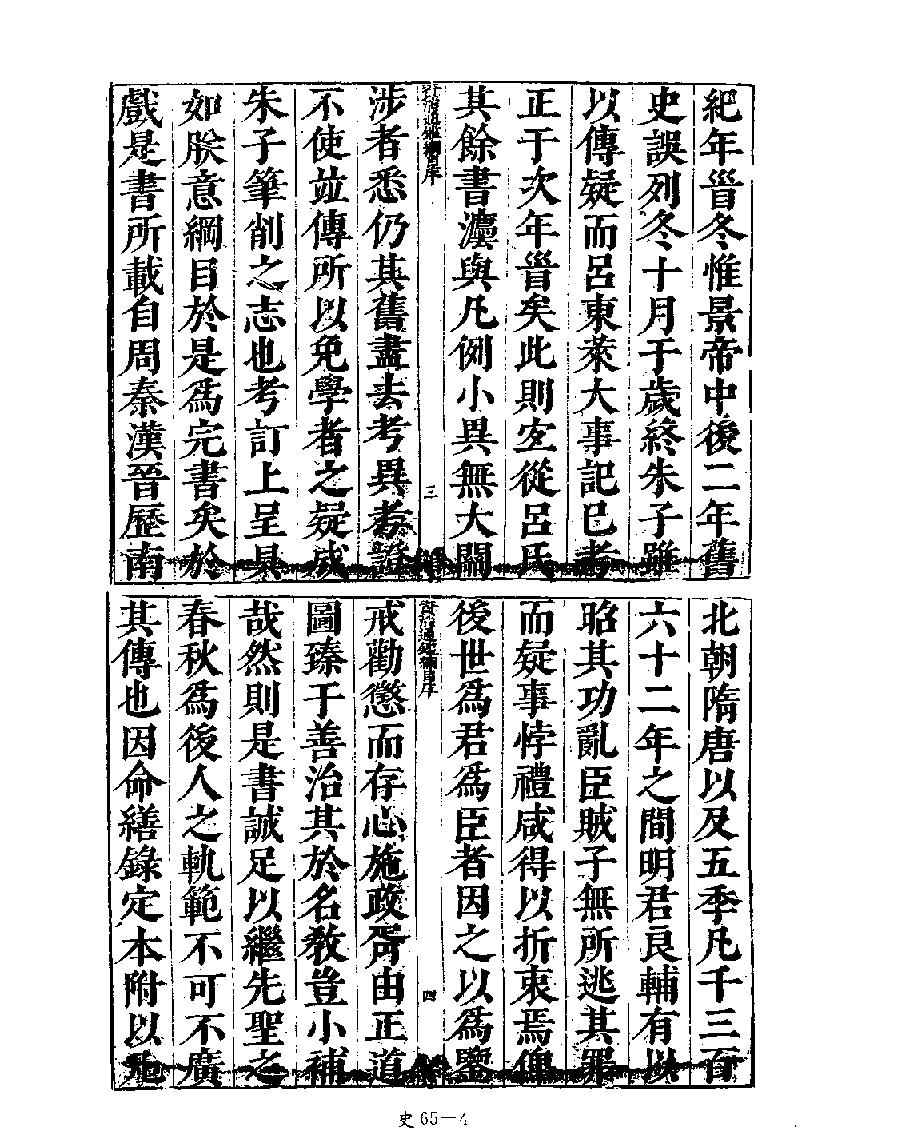 紀年首冬惟景帝中後二年舊
史誤列冬十月于歲終朱子雖
以傳疑而呂東萊大事記已考
正于次年首矣此則宜從呂氏
其餘書灋與凡例小異無大關
資治通鑑綱目序 三
涉者悉仍其舊盡去考異考證
不使竝傳所以免學者之疑成
朱子筆削之志也考訂上呈具
如朕意綱目於是爲完書矣於
戲是書所載自周秦漢晉歷南
北朝隋唐以及五季凡千三百
六十二年之間明君良輔有以
昭其功亂臣賊子無所逃其罪
而疑事悖禮咸得以折衷焉俾
後世爲君爲臣者因之以爲鑒
資治通鑑綱目序 四
戒勸懲而存心施政胥由正道
圖臻于善治其於名教豈小補
哉然則是書誠足以繼先聖之
春秋爲後人之軌範不可不廣
其傳也因命繕錄定本附以凡
史 65—4